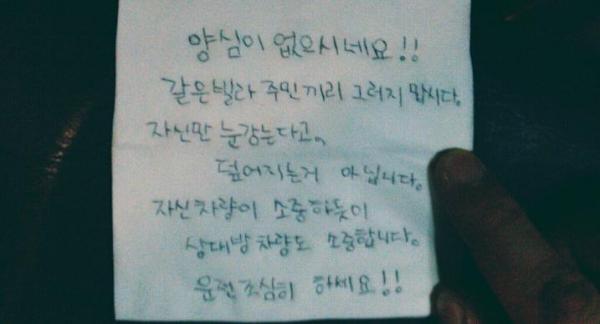 양심이 없으시네요!!
같은빌라 주민끼리 그러지 맙시다.
자신만 눈감는다고,
덮어지는거 아닙니다.
자신차량이 소중하듯이
상대방차량도 소중합니다.
운전조심히 하세요!!